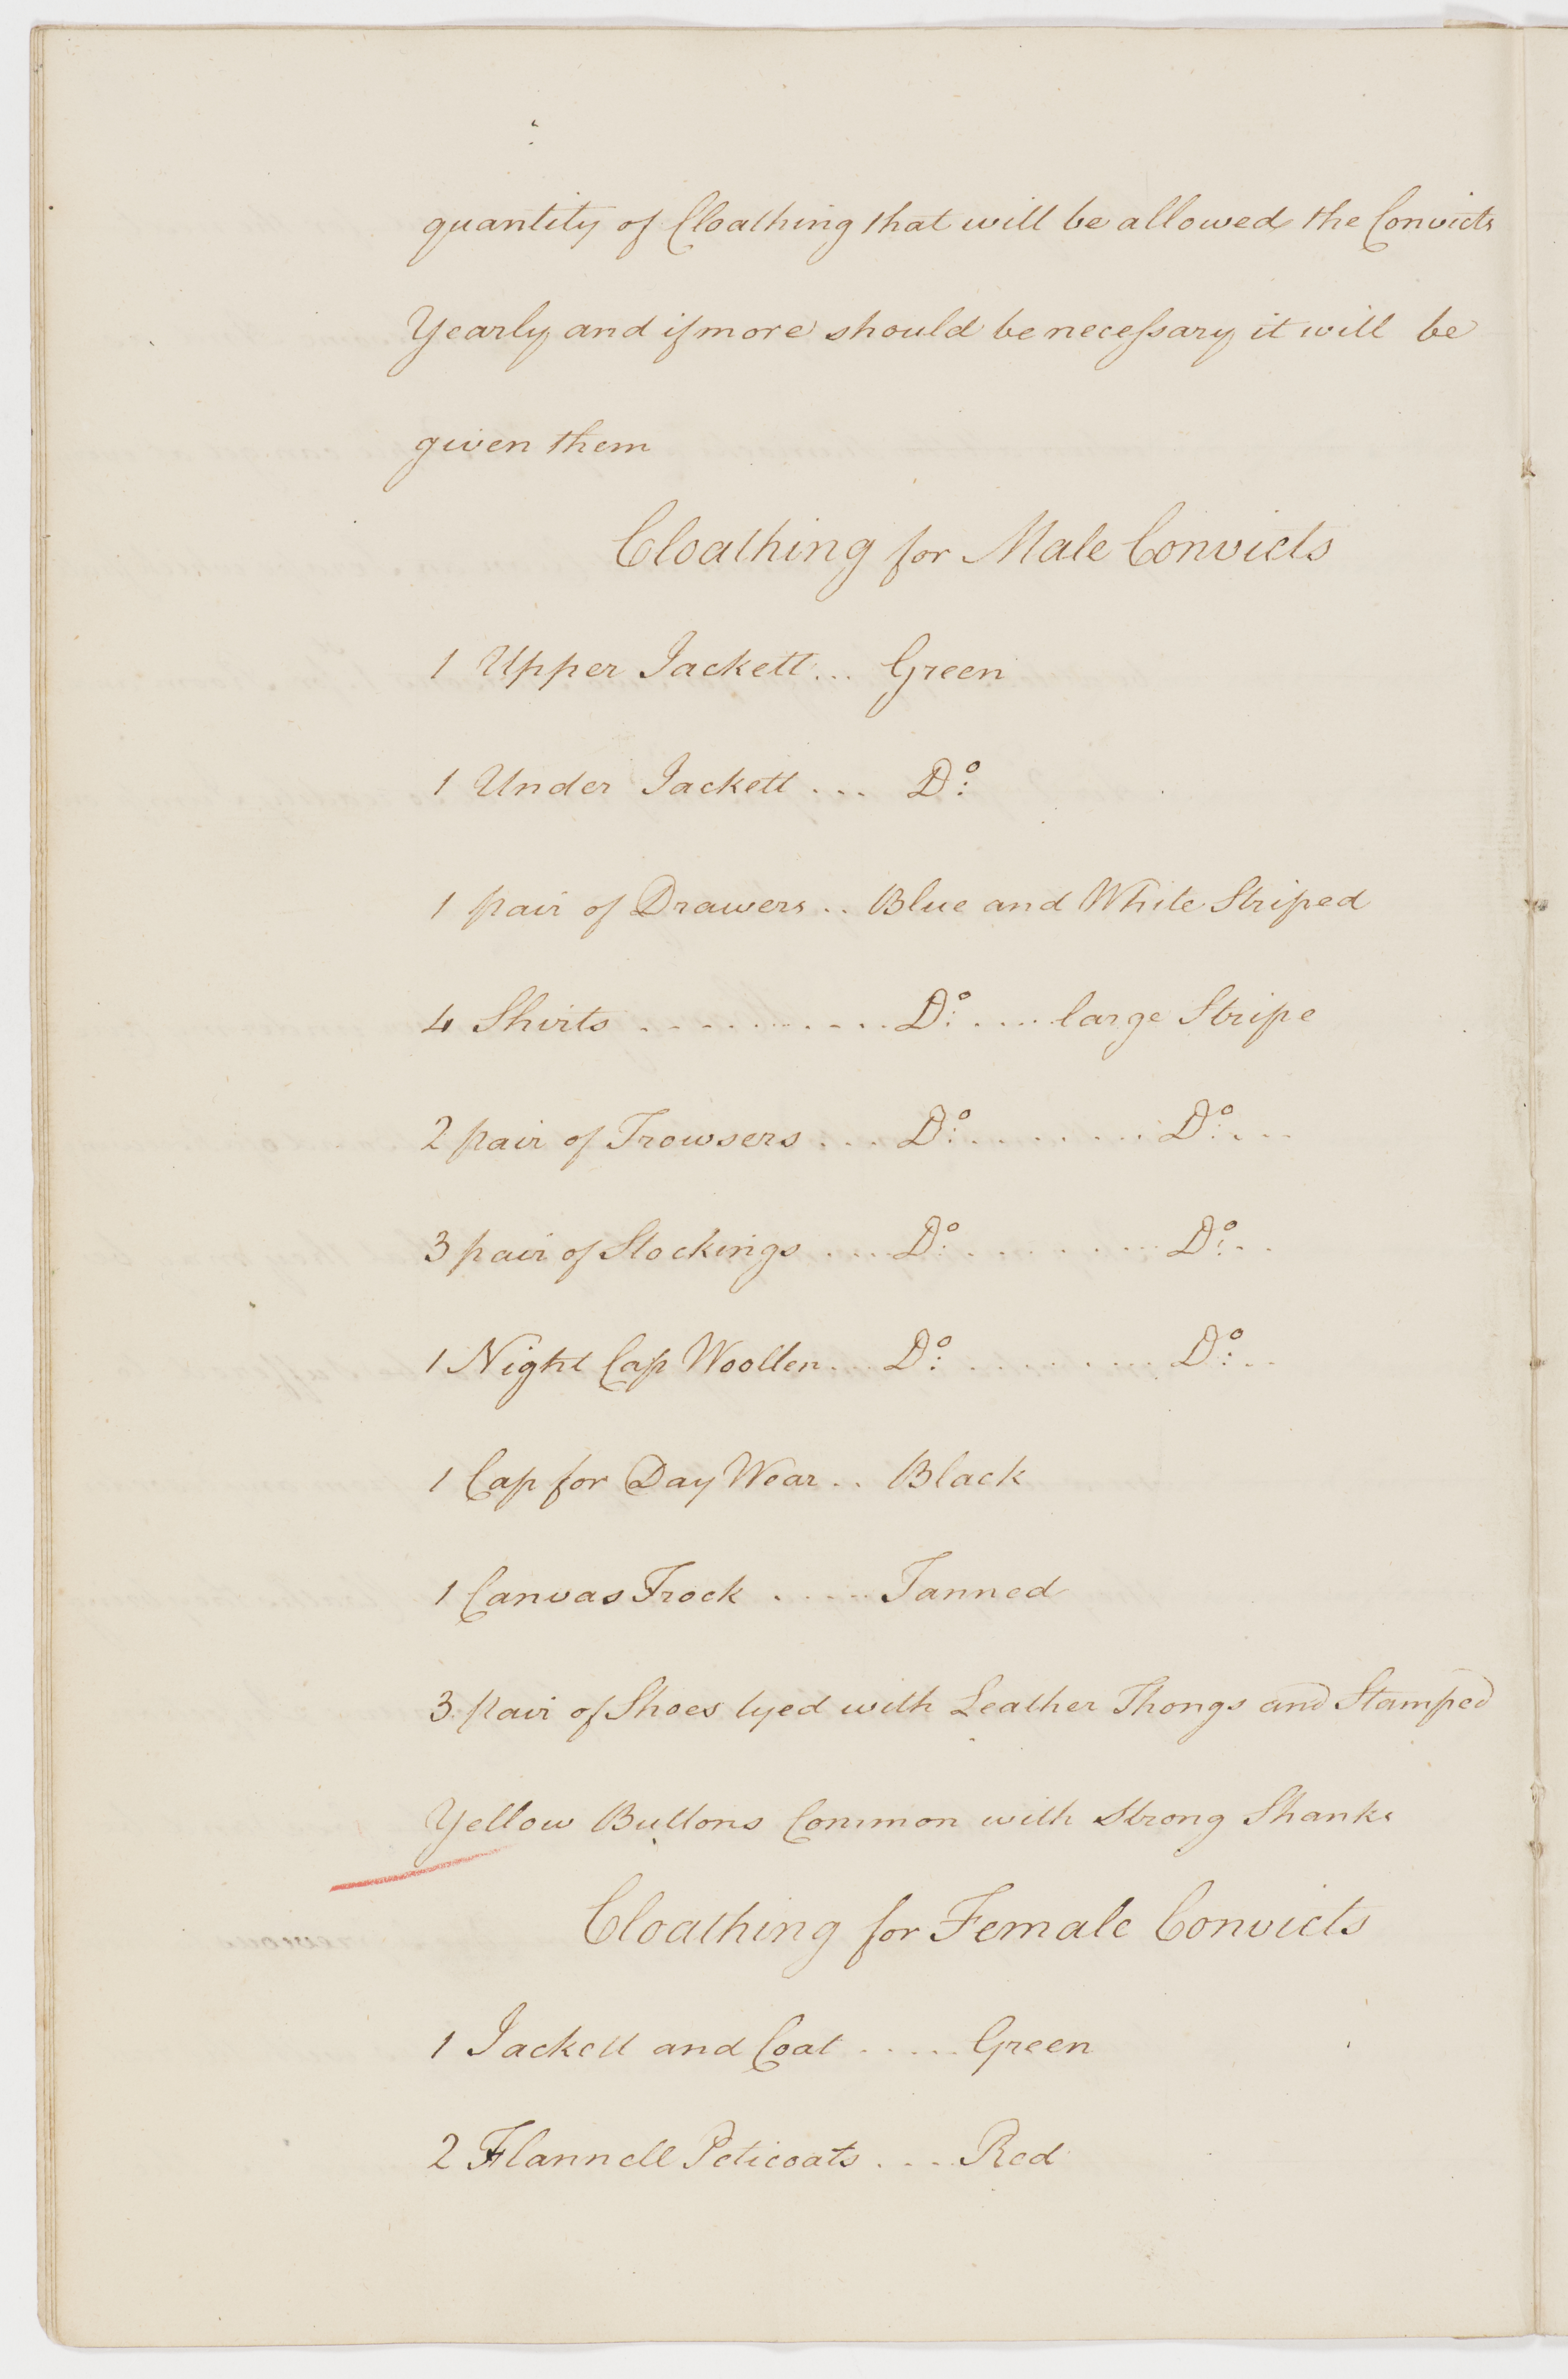 quantity of Cloathing that will be allowed the Convicts
Yearly and if more should be necessary it will be
given them
Cloathing for Male Convicts
1 Upper Jackett... Green
1 Under Jackett .... Do:
1 pair of Drawers .. Blue and White Striped
4 Shirts .......... Do: .... large Stripe
2 pair of Trowsers .... Do: ........ Do: ...
3 pair of Stockings .... Do: ........ Do: ..
1 Night Cap Woollen .... Do: ........ Do: ..
1 Cap for Day Wear .. Black
1 Canvas Frock ..... Tanned
3. pair of Shoes tyed with Leather Thongs and Stamped
Yellow Buttons Common with Strong Shanks
Cloathing for Female Convicts
1 Jackett and Coat ..... Green
2 Flannell Peticoats .... Red